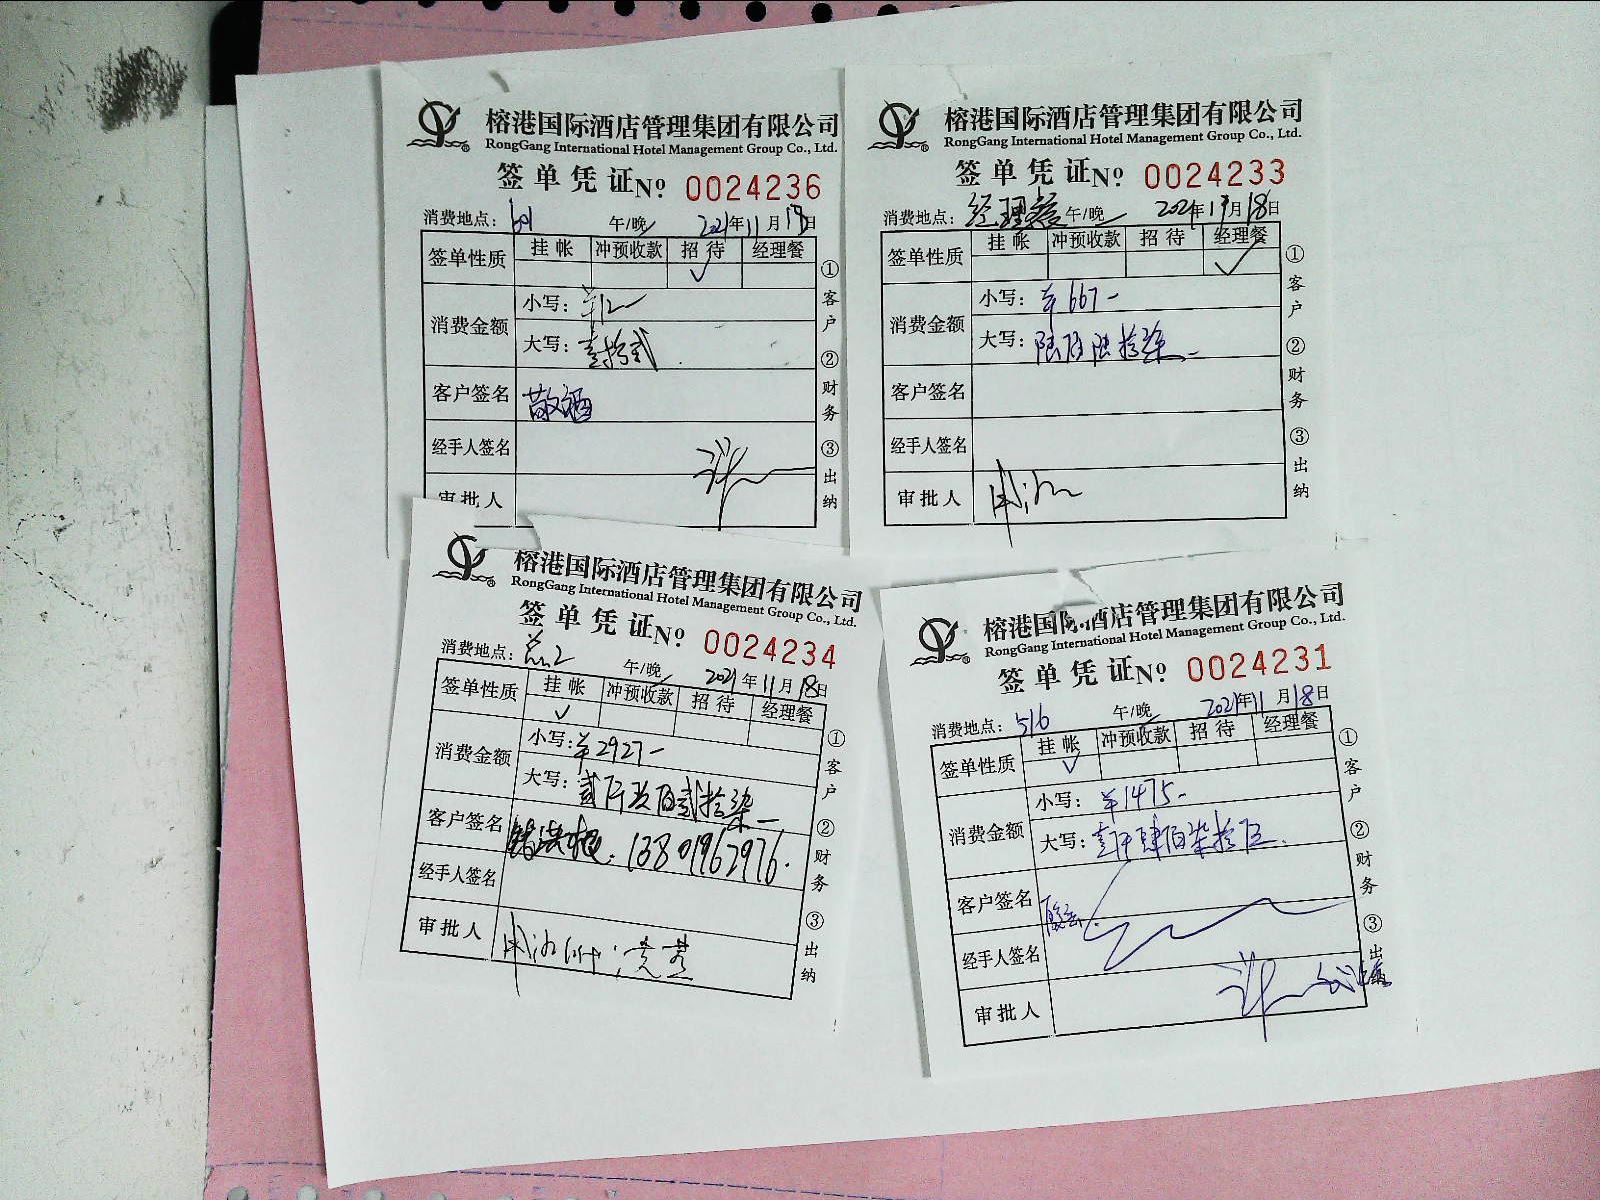 榕港国际酒店管理集团有限公司
RongGang International Hotel Management Group Co., Ltd.
签单凭证 Nº 0024236
消费地点：601 午/晚 2021年11月18日
签单性质 挂帐 冲预收款 招待 经理餐
✓
消费金额 小写：¥12—
大写：壹拾贰
客户签名 敬酒
经手人签名
审批人
①客户 ②财务 ③出纳
榕港国际酒店管理集团有限公司
RongGang International Hotel Management Group Co., Ltd.
签单凭证 Nº 0024233
消费地点：经理餐 午/晚 2021年11月18日
签单性质 挂帐 冲预收款 招待 经理餐
✓
消费金额 小写：¥667—
大写：陆佰陆拾柒
客户签名
经手人签名
审批人
①客户 ②财务 ③出纳
榕港国际酒店管理集团有限公司
RongGang International Hotel Management Group Co., Ltd.
签单凭证 Nº 0024234
消费地点： 午/晚 2021年11月18日
签单性质 挂帐 冲预收款 招待 经理餐
✓
消费金额 小写：¥2927—
大写：贰仟玖佰贰拾柒
客户签名 13801962976.
经手人签名
审批人
①客户 ②财务 ③出纳
榕港国际酒店管理集团有限公司
RongGang International Hotel Management Group Co., Ltd.
签单凭证 Nº 0024231
消费地点：516 午/晚 2021年11月18日
签单性质 挂帐 冲预收款 招待 经理餐
✓
消费金额 小写：¥1475—
大写：壹仟肆佰柒拾伍
客户签名
经手人签名
审批人
①客户 ②财务 ③出纳